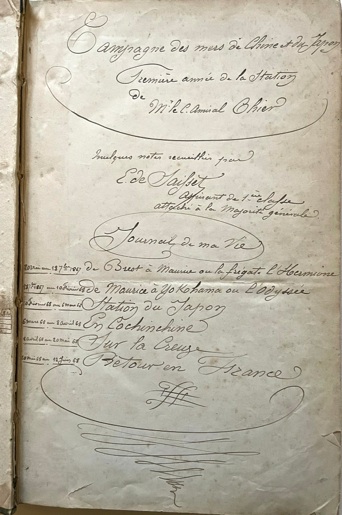 Campagne des mers de Chine et du Japon
Première année de la Station
de
Mr le C. Amiral Ohier
Quelques notes recueillies par
E de
Aspirant de 1ère classe
attaché à la Majorité générale
Journal de ma Vie
de Brest à Maurice ou la frégate l'Hermione
de Maurice à Yokohama ou l'Odyssée
Station du Japon
En Cochinchine
Sur la Creuse
Retour en France